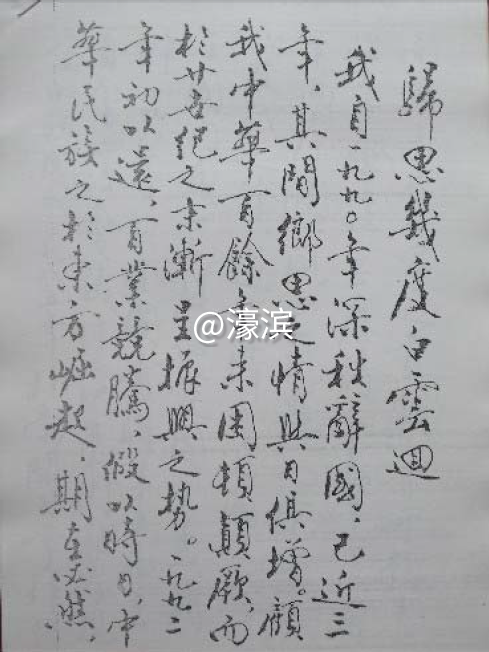 歸思幾度白雲迴
我自一九九〇年深秋辭國，已近三
年，其間鄉思之情與日俱增。顧
我中華百餘年來困頓顛蹶，而
於廿世紀之末漸呈振興之勢。一九九二
年初以還，百業競騰，假以時日，中
華民族之於東方崛起，期在必然，
@濠滨